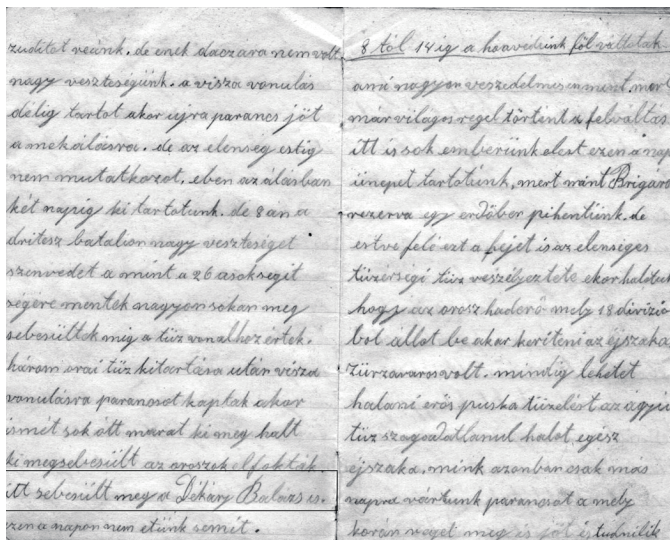 zuditot veánk. de enek daczára nem volt
nagy veszteségünk. a visza vonulás
délig tartot akor ujra parancs jöt
a mekálásra. de az elenség estig
nem mutatkozot. eben az álásban
két napig ki tartotunk. de 8 an a
dritesz batalion nagy veszteséget
szenvedet a mint a 26 asok segit
ségére mentek nagyon sokan meg
sebesültek mig a tüz vonalhoz értek.
három orai tüz kitartása után visza
vonulásra parancsot kaptak akor
ismét sok ott marat ki meg halt
ki megsebesült az oroszok elfokták
itt sebesült meg a Dékány Balázs is.
ezen a napon nem etünk semit.
8 tól 14 ig a honvedünk föl váltotak
ami nagyon veszedelmesen ment, mert
már világos regel történt a felváltás
itt is sok emberünk elest ezen a nap
ünepet tartotunk, mert mint Brigard
rezerva egy erdőber pihentünk. de
estve felé ezt a fejét is az elenséges
tüzérségi tüz veszélyeztete ekor halotuk
hogy az orosz haderő mely 18 divizio
bol állot be akar keriteni az ejszaka
zürzavaros volt. mindig lehetet
halani erős puska tüzelést az agyu
tüz szagadatlanul halot egész
éjszaka. mink azonban csak más
napra vártunk parancsot a mely
korán reget meg is jöt és tudnilik